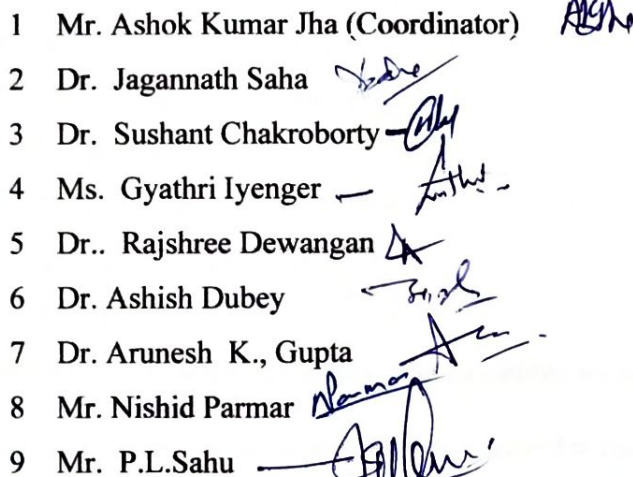 1 Mr. Ashok Kumar Jha (Coordinator)
2 Dr. Jagannath Saha
3 Dr. Sushant Chakroborty
4 Ms. Gyathri Iyenger
5 Dr.. Rajshree Dewangan
6 Dr. Ashish Dubey
7 Dr. Arunesh K., Gupta
8 Mr. Nishid Parmar
9 Mr. P.L.Sahu